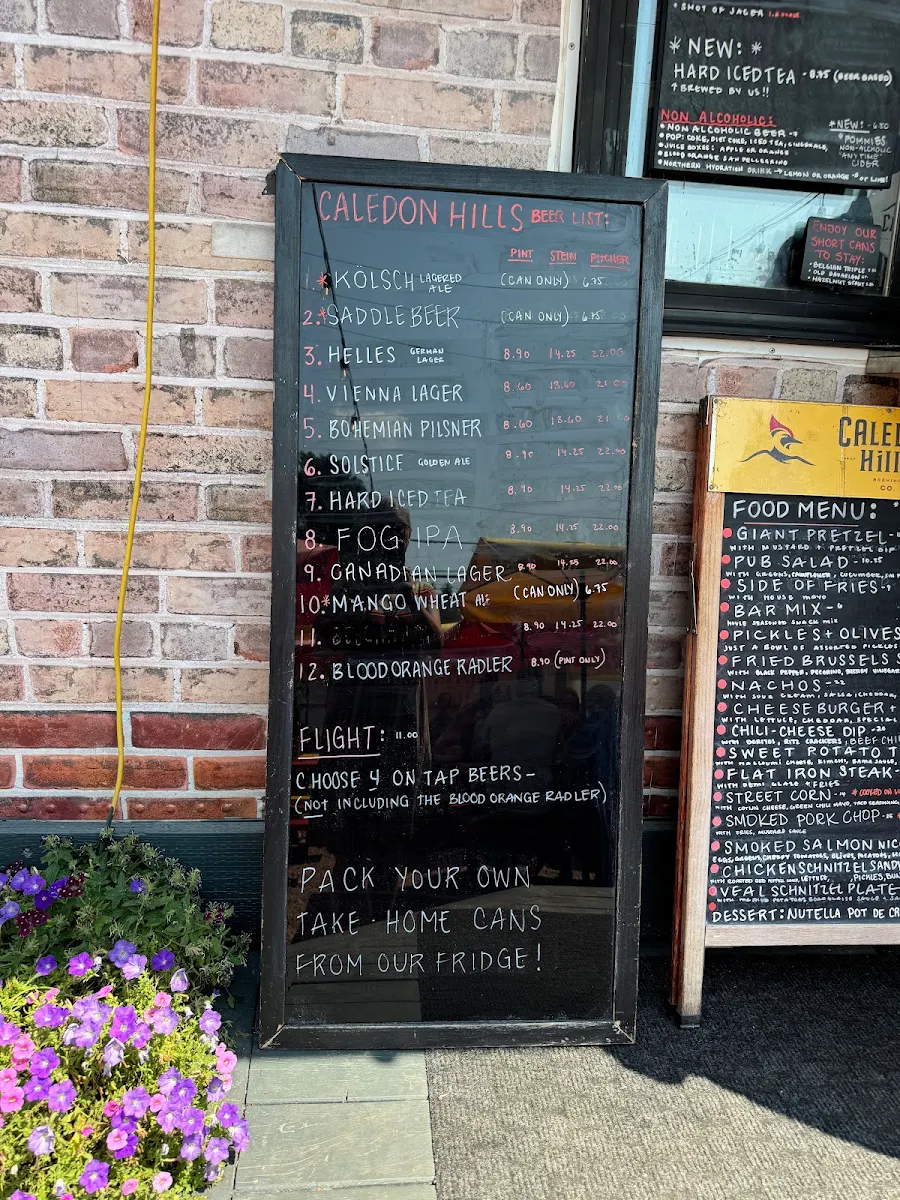 CALEDON HILLS BEER LIST:
PINT STEIN PITCHER
1.* KÖLSCH LAGERED ALE (CAN ONLY) 6.75
2.* SADDLE BEER (CAN ONLY) 6.75
3. HELLES GERMAN LAGER 8.90 14.25 22.00
4. VIENNA LAGER 8.60 13.60 21.00
5. BOHEMIAN PILSNER 8.60 13.60 21
6. SOLSTICE GOLDEN ALE 8.90 14.25 22.00
7. HARD ICED TEA 8.90 14.25 22.00
8. FOG IPA 8.90 14.25 22.00
9. CANADIAN LAGER 8.90 14.25 22.00
10.* MANGO WHEAT ALE (CAN ONLY) 6.75
11. 8.90 14.25 22.00
12. BLOOD ORANGE RADLER 8.90 (PINT ONLY)
FLIGHT: 11.00
CHOOSE 4 ON TAP BEERS-
(NOT INCLUDING THE BLOOD ORANGE RADLER)
PACK YOUR OWN
TAKE HOME CANS
FROM OUR FRIDGE!
• SHOT OF JAGER
* NEW: *
HARD ICED TEA - 8.75 (BEER BASED)
↑ BREWED BY US!!
NON ALCOHOLIC:
• NON ALCOHOLIC BEER - 7
• POP: COKE, DIET COKE, ICED TEA, GINGERALE,
• JUICE BOXES: APPLE OR ORANGE
• BLOOD ORANGE SAN PELLEGRINO
• NORTHERN HYDRATION DRINK → LEMON OR ORANGE
*NEW: - 6.50
*POMMIES
NON-ALCOHOLIC
"ANYTIME"
CIDER
ENJOY OUR
SHORT CANS
TO STAY:
• BELGIAN TRIPLE
• OLD BAVARIAN
• HAZELNUT
CALED
Hill
CO.
FOOD MENU:
GIANT PRETZEL-
WITH MUSTARD + PRETZEL DIP
PUB SALAD -
SIDE OF FRIES-
WITH HOUSE MAYO
BAR MIX - 6
HOUSE SEASONED SNACK MIX
PICKLES + OLIVES
JUST A BOWL OF ASSORTED PICKLES
FRIED BRUSSELS S
WITH BLACK PEPPER, PECORINO,
NACHOS - 22
WITH SOUR CREAM, SALSA, CHEDDAR,
CHEESEBURGER +
WITH LETTUCE, CHEDDAR, SPECIAL
CHILI-CHEESE DIP - 20
WITH DORITOS, RITZ CRACKERS, BEEF CHILI
SWEET POTATO T
FLAT IRON STEAK-
WITH DEMI GLAZE + FRIES
STREET CORN - 14
WITH COTIJA CHEESE, GREEN CHILI MAYO, TACO SEASONING,
SMOKED PORK CHOP
WITH FRIES,
SMOKED SALMON NIC
CHICKEN SCHNITZEL SAND
VEAL SCHNITZEL PLATE
DESSERT: NUTELLA POT DE CR